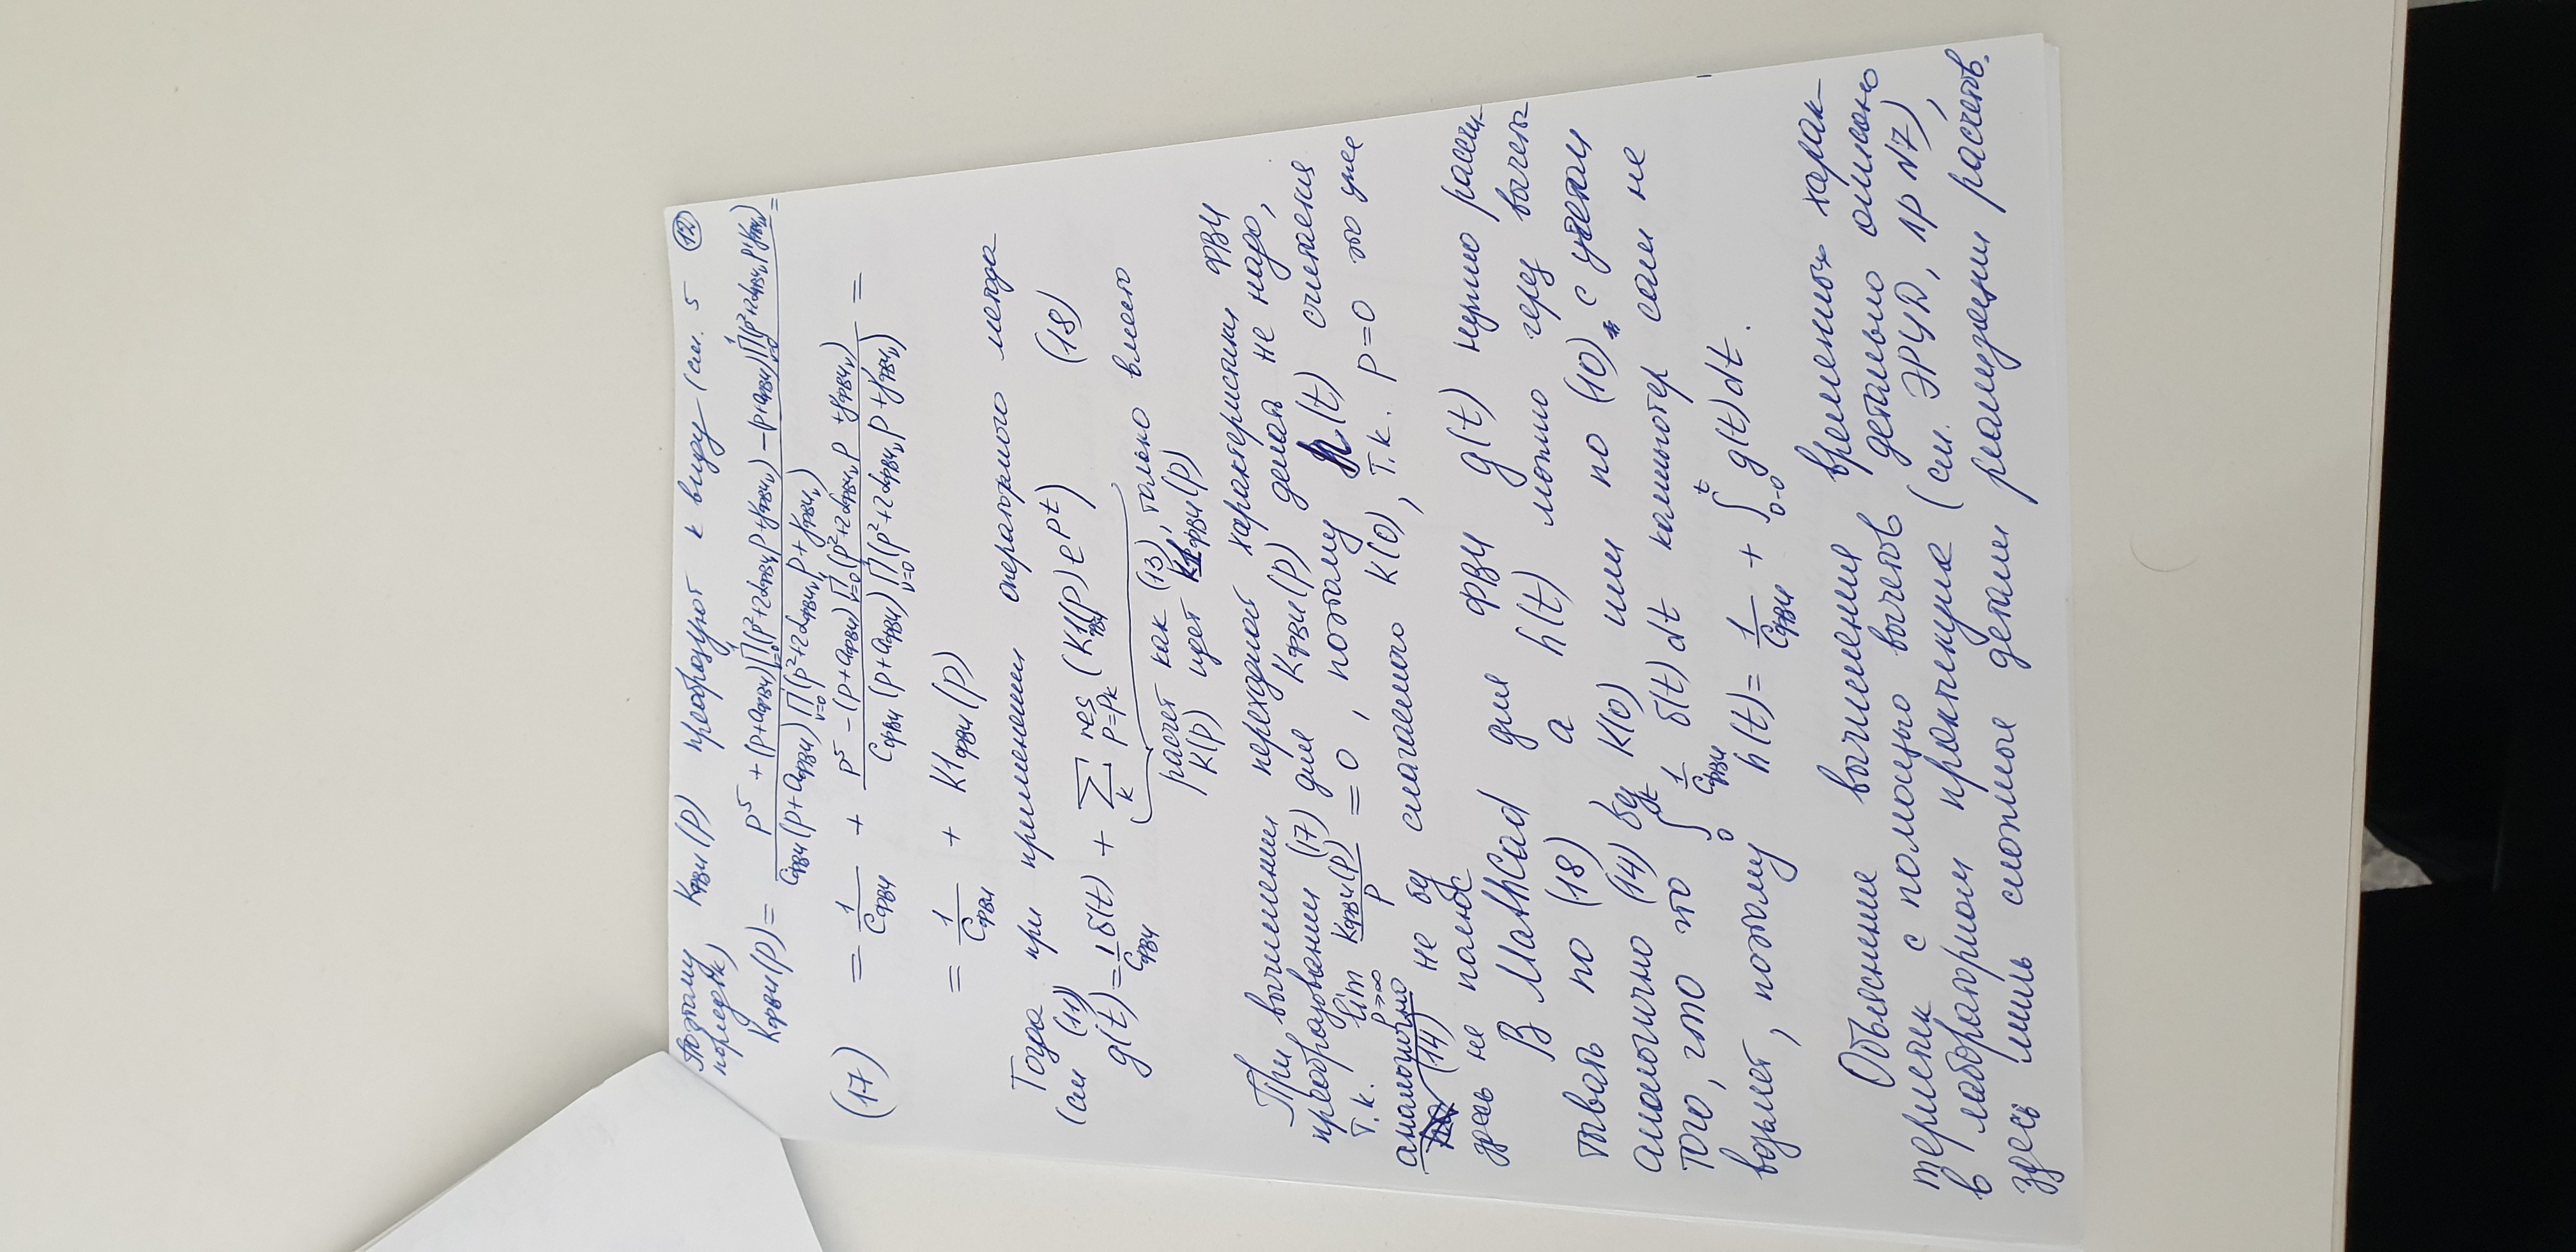 Поэтому Kфвч(p) преобразуют к виду (см. 5 12
порядок)
Kфвч(p) = \frac{p^5 + (p+aфвч)\prod_{ν=0}^{1}(p^2+2αфвчν p+γфвчν) − (p+aфвч)\prod_{ν=0}^{1}(p^2+2αфвчν p+γфвчν)}{Cфвч(p+aфвч)\prod_{ν=0}^{1}(p^2+2αфвчν p+γфвчν)} =
(17) = \frac{1}{Cфвч} + \frac{p^5 − (p+aфвч)\prod_{ν=0}^{1}(p^2+2αфвчν p+γфвчν)}{Cфвч(p+aфвч)\prod_{ν=0}^{1}(p^2+2αфвчν p+γфвчν)} =
= \frac{1}{Cфвч} + K1фвч(p)
Тогда при применении операторного метода
(см (11))
g(t) = \frac{1}{Cфвч} δ(t) + \sum_k res_{p=pk} (K1фвч(p) e^{pt}) (18)
расчет как (13), только вместо
K(p) идет K1фвч(p)
При вычислении переходной характеристики ФВЧ
преобразовании (17) для Kфвч(p) делать не надо,
т.к. lim_{p→∞} \frac{Kфвч(p)}{p} = 0, поэтому h(t) считается
аналогично
(14) но бз слагаемого K(0), т.к. p=0 это уже
здесь не полюс
В MathCad для ФВЧ g(t) нужно рассчи-
тывать по (18), а h(t) можно через вычеты
аналогично (14) бз K(0) или по (10) с учетом
того, что это \int_0^t \frac{1}{Cфвч} δ(t) dt компьютер сам не
возьмет, поэтому h(t) = \frac{1}{Cфвч} + \int_{0-0}^{t} g(t) dt.
Объяснение вычисления временных харак-
теристик с помощью вычетов детально описано
в лабораторном практикуме (см. ЭРУД, ЛР №7),
здесь лишь сложные детали реализации расчетов.